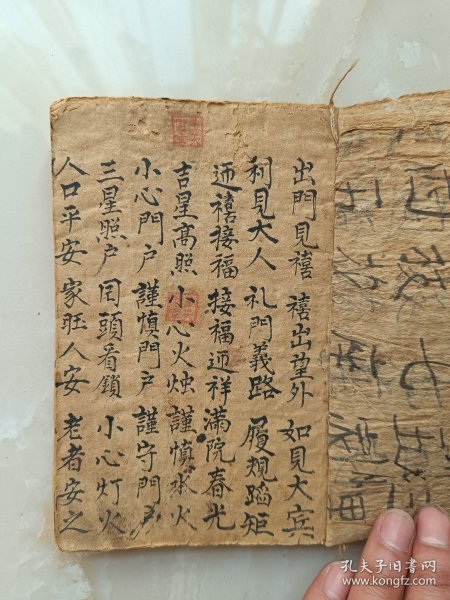 出門見禧 禧出望外 如見大宾
利見大人 礼門義路 履規蹈矩
迊禧接福 接福迊祥 滿院春光
吉星髙照 小心火烛 謹慎水火
小心門户 謹慎門户 謹守門户
三星照户 囘頭看鎖 小心灯火
人口平安 家旺人安 老者安之
孔夫子旧书网
www.kongfz.com